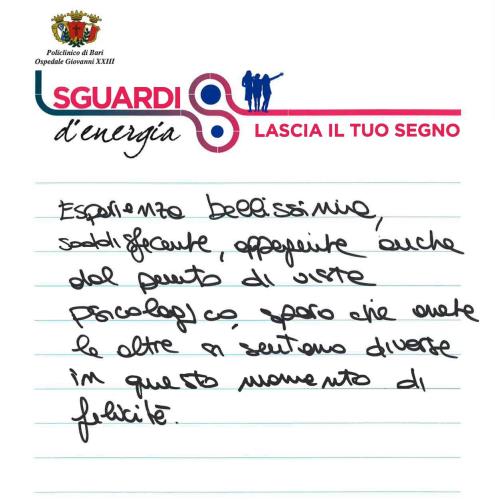 Policlinico di Bari
Ospedale Giovanni XXIII
SGUARDI
d'energia
LASCIA IL TUO SEGNO
Esperienza bellissima,
soddisfecente, appagante anche
dal punto di vista
psicologico, spero che anche
le altre si sentano diverse
in questo momento di
felicità.